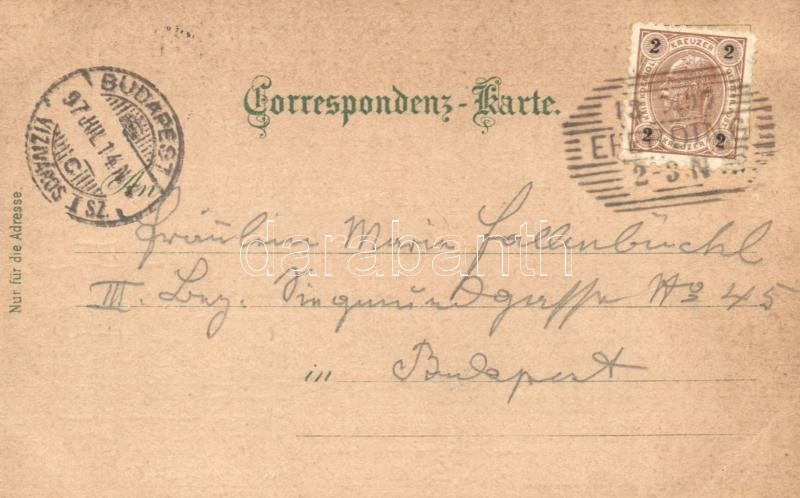 Correspondenz-Karte.
An
Fräulein Marie Fallenbüchl
III. Bez. Siegmundgasse No 45
in Budapest
Nur für die Adresse.
BUDAPEST
97 JUL. 14. N
C
VIZIVÁROS I SZ.
2 KREUZER 2
2 KREUZER 2
2-3 N
darabanth